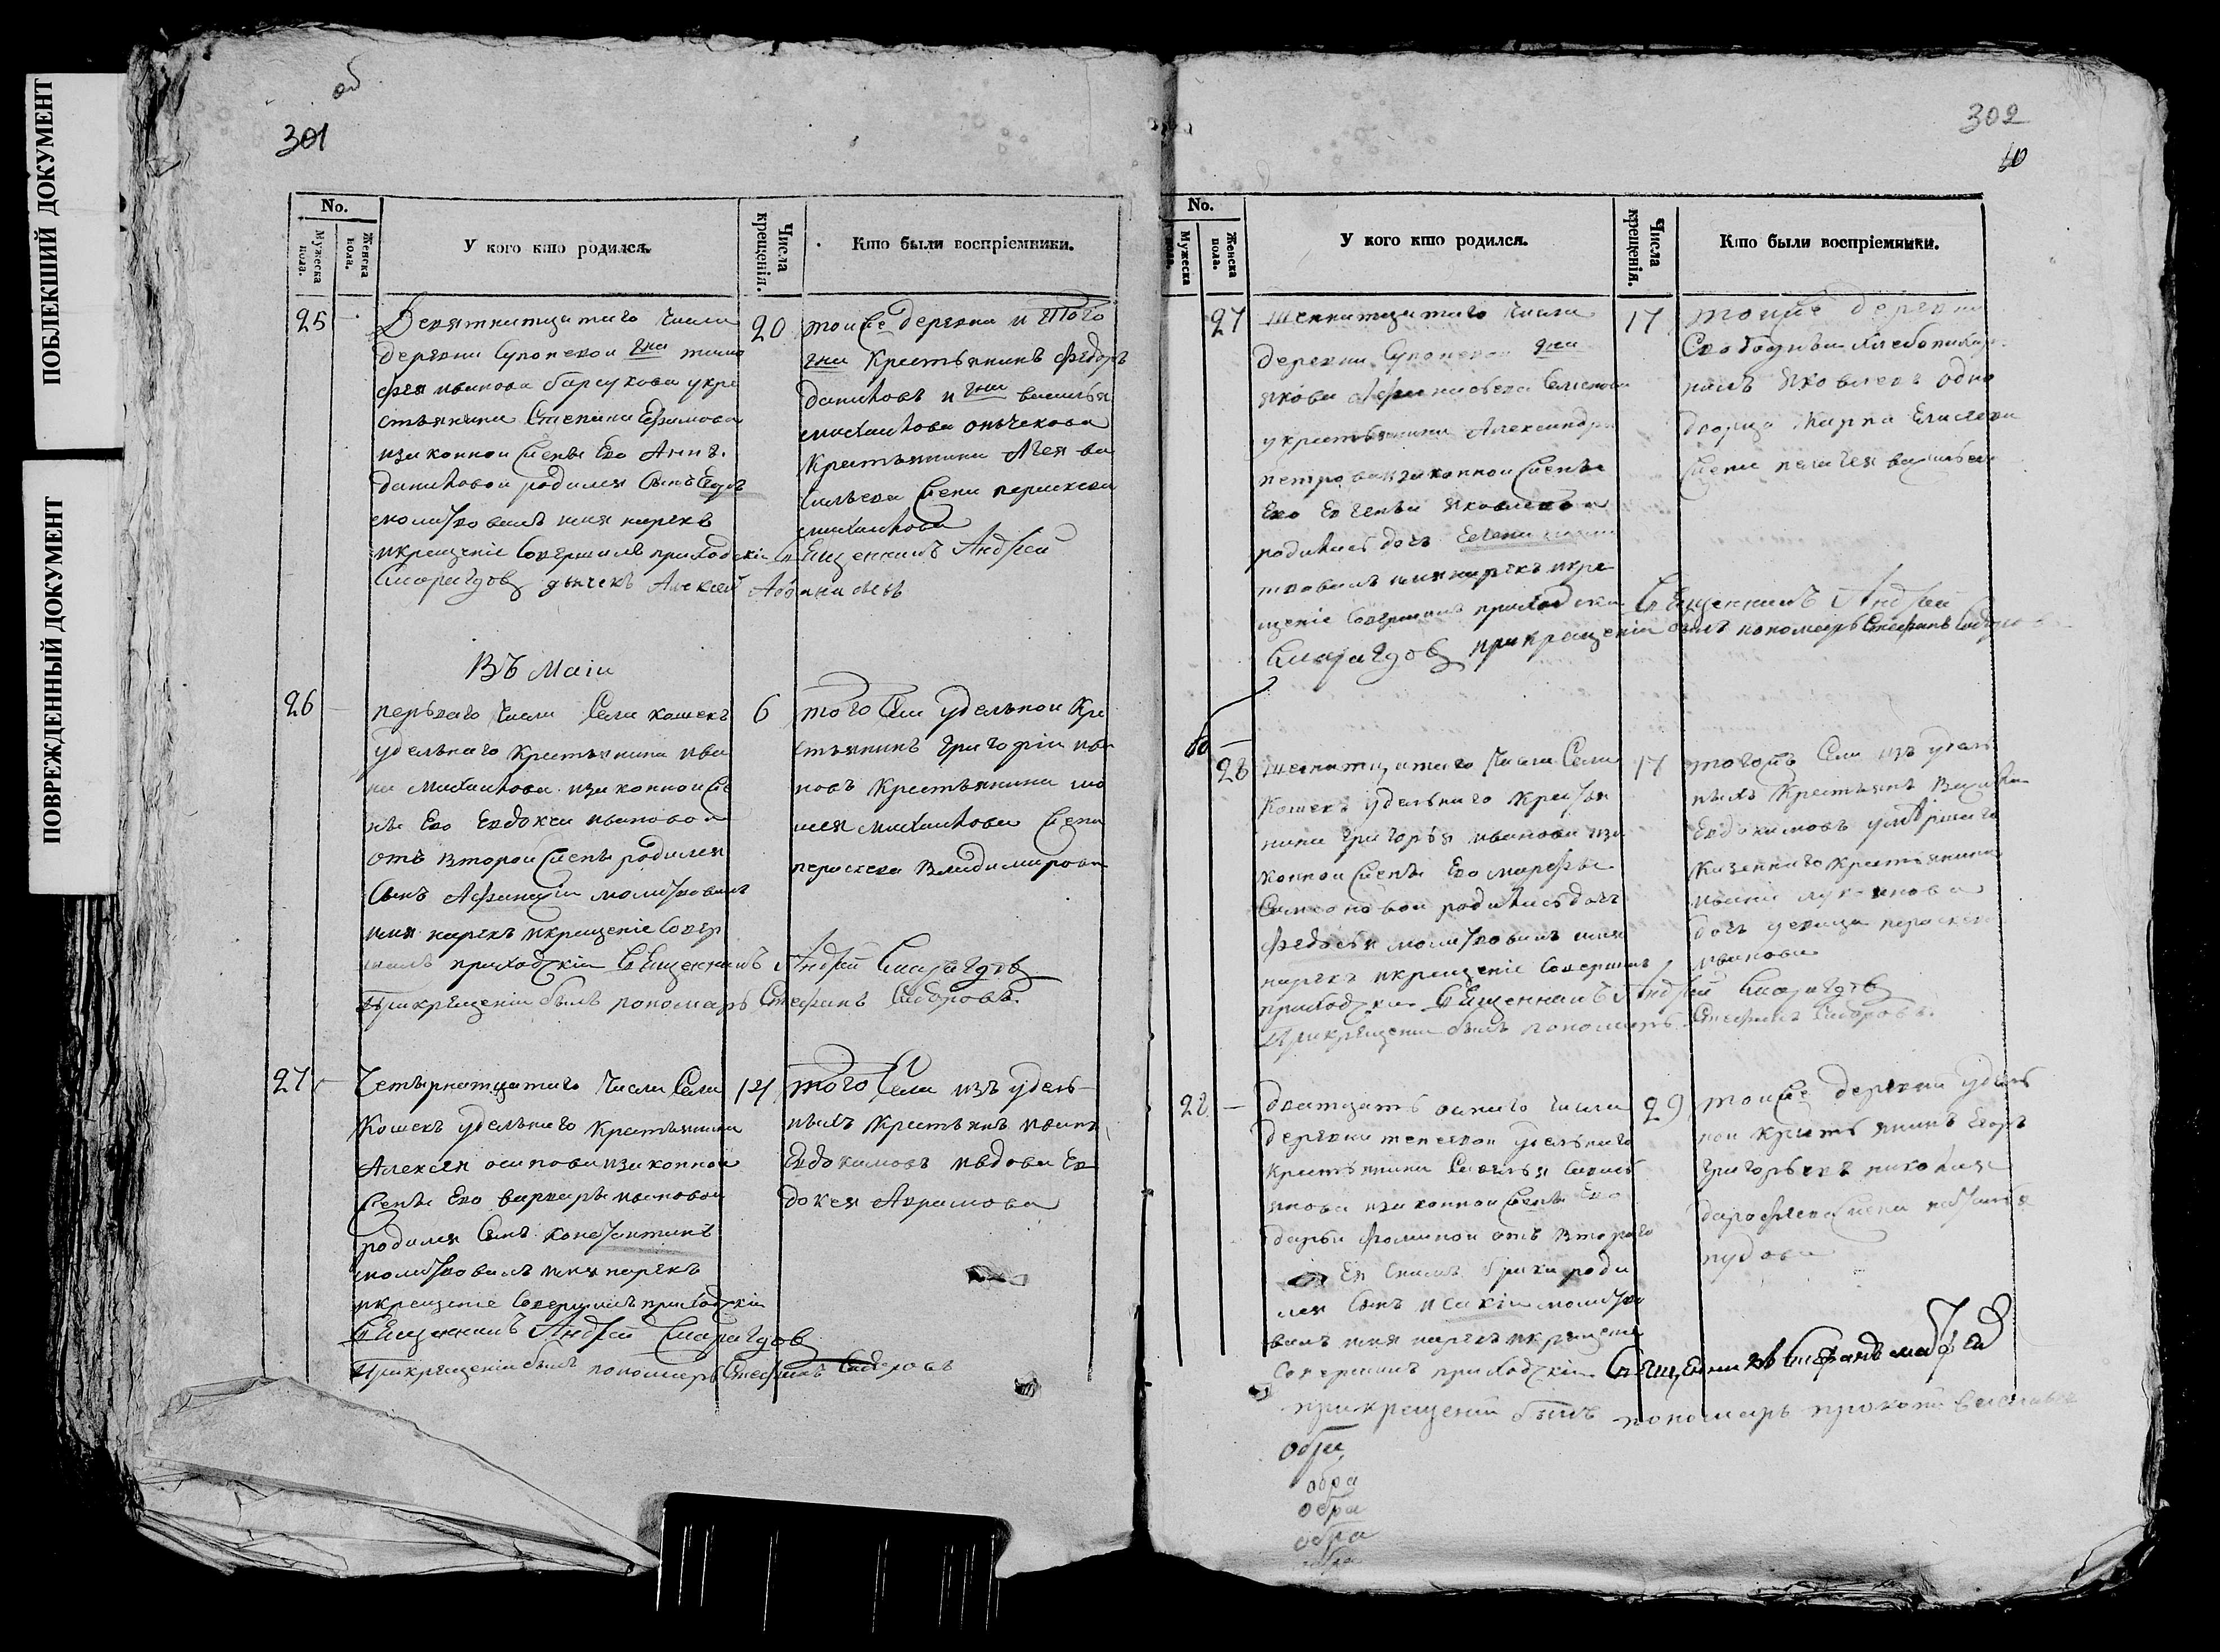 ПОБЛЕКШИЙ ДОКУМЕНТ
ПОВРЕЖДЕННЫЙ ДОКУМЕНТ
об
301
No.
Мужеска пола.
Женска пола.
У кого кто родился.
Числа крещенія.
Кто были воспріемники.
25
Девятнатцатаго числа
деревни Супоневои гна тимо
фея иванова барсукова у кре
стьянина Степана Ефимова
иза конной жены Ево Анны
даниловои родился сынъ Егоръ
молитвовалъ имя нарекъ
икрещеніе совершилъ приходскіи Священникъ Андрей
Смарагдовъ дьячекъ Алексей
20
тоиже деревни и того
гна Крестьянинъ Федоръ
даниловъ и гна василья
михаилова
Крестьянина Агея ва
сильева жена пераскева
михаилова
Въ Маіи
26
перьваго числа Села кошекъ
удельнаго Крестьянина ива
на Михаилова иза конной же
ны Ево Евдокеи ивановои
отъ второи жены родился
сынъ Афанасіи молитвовалъ
имя нарекъ икрещеніе совер
шилъ приходскіи Священникъ Андрей Смарагдовъ
Прикрещеніи былъ пономарь Стефанъ Сидоровъ.
6
того Села удельнои Кре
стьянинъ Григоріи ива
новъ Крестьянина мо
исея михаилова жена
пераскева Владимирова
27
Четырнатцатаго числа Села
Кошекъ удельнаго Крестьянина
Алексея осипова иза коннои
жены Ево варвары ивановои
родился сынъ константинъ
молитвовалъ имя нарекъ
икрещеніе совершилъ приходскіи
Священникъ Андрей Смарагдовъ
Прикрещеніи былъ пономарь Стефанъ Сидоровъ
14
того Села изъ удель
ныхъ Крестьянъ иванъ
Евдокимовъ вдова Ев
докея Аврамова
302
No.
Мужеска пола.
Женска пола.
У кого кто родился.
Числа крещенія.
Кто были воспріемники.
27
шеснатцатаго числа
деревни Супоневои гна
якова Афанасьева
у крестьянина Александра
петрова иза коннои жены
Ево Евгеньи яковлевои
родилась дочь Елена
твовалъ имя нарекъ икре
щеніе совершилъ приходскіи Священникъ Андрей
Смарагдовъ прикрещеніи былъ пономарь Стефанъ
17
тоиже деревни
Свободныи хлебопашец
яковлевъ одно
дворца Карпа Елисеева
жена пелагея васильева
28
шеснатцатаго числа Села
Кошекъ удельнаго крестья
нина григорья иванова иза
коннои жены Ево марфы
Симеоновои родилась дочь
Федосья молитвовалъ имя
нарекъ икрещеніе совершилъ
приходскіи Священникъ Андрей Смарагдовъ
Прикрещеніи былъ пономарь Стефанъ Сидоровъ.
17
тогожъ Села изъ удель
ныхъ Крестьянъ
Евдокимовъ умершаго
Казеннаго крестьянина
лукьянова
дочь девица пераскева
иванова
28
дватцать осмаго числа
деревни удельнаго
крестьянина Савелья
иза коннои жены Ево
дарьи Фоминои отъ втораго
Ея снимъ брака роди
лся сынъ Исакіи молитво
валъ имя нарекъ икрещеніе
совершилъ приходскіи Священникъ
прикрещеніи былъ пономарь прокопи васильевъ
29
тоиже деревни удель
нои Крестьянинъ Егоръ
Григорьевъ николая
дарофеева жена наталья
обра
обра
обра
обра